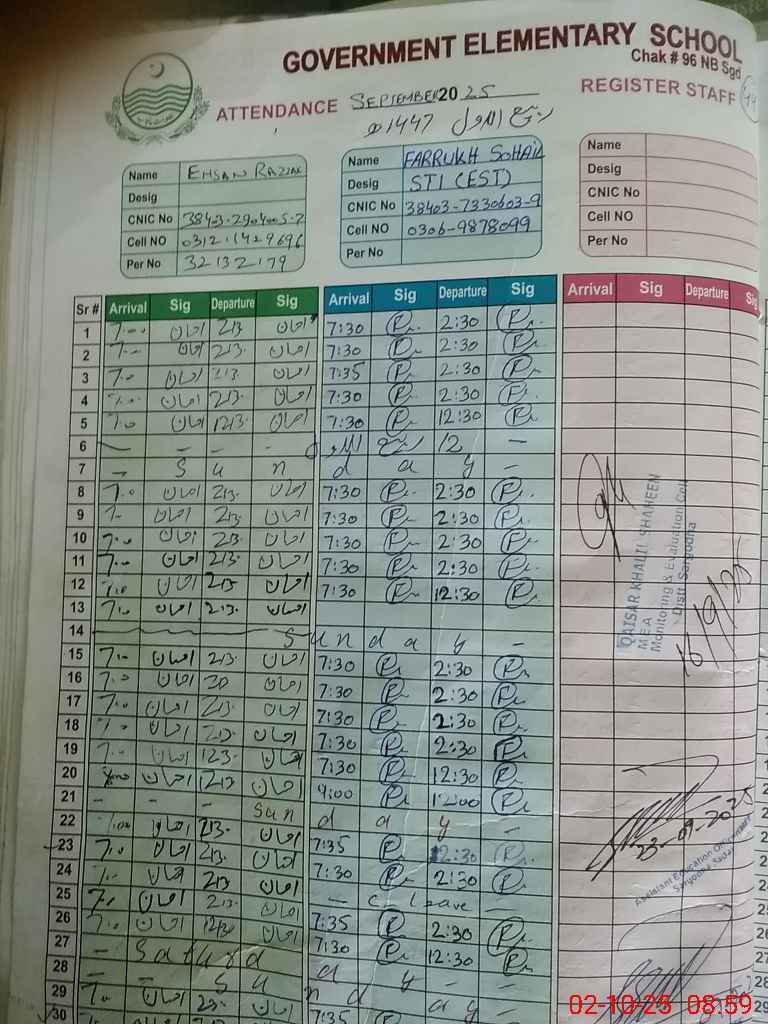 GOVERNMENT ELEMENTARY SCHOOL
Chak # 96 NB Sgd
ATTENDANCE SEPTEMBER 2025 REGISTER STAFF
ربیع الاول 1447ھ
Name EHSAN RAZZAK
Desig
CNIC No 38403-2904005-7
Cell NO 0312-1429696
Per No 32132179
Name FARRUKH SOHAIL
Desig STI (EST)
CNIC No 38403-7330603-9
Cell NO 0306-9878099
Per No
Name
Desig
CNIC No
Cell NO
Per No
Sr # Arrival Sig Departure Sig Arrival Sig Departure Sig Arrival Sig Departure Sig
1 7:00 احسان 2:30 احسان 7:30 2:30
2 7:00 احسان 2:30 احسان 7:30 2:30
3 7:00 احسان 2:30 احسان 7:35 2:30
4 7:00 احسان 2:30 احسان 7:30 2:30
5 7:00 احسان 12:30 احسان 7:30 12:30
6 - - - - 12 ربیع الاول -
7 - S u n d a y -
8 7:00 احسان 2:30 احسان 7:30 2:30
9 7:00 احسان 2:30 احسان 7:30 2:30
10 7:00 احسان 2:30 احسان 7:30 2:30
11 7:00 احسان 2:30 احسان 7:30 2:30
12 7:00 احسان 2:30 احسان 7:30 12:30
13 7:00 احسان 2:30 احسان
14 S u n d a y -
15 7:00 احسان 2:30 احسان 7:30 2:30
16 7:00 احسان احسان 7:30 2:30
17 7:00 احسان 2:30 احسان 7:30 2:30
18 7:00 احسان 2:30 احسان 7:30 2:30
19 7:00 احسان 12:30 احسان 7:30 12:30
20 احسان 2:30 احسان 9:00 12:00
21 - - - Sun d a y -
22 7:00 احسان 2:30 احسان 7:35 12:30
23 7:00 احسان 2:30 احسان 7:30 2:30
24 7:00 احسان 2:30 احسان - C. leave -
25 7:00 احسان احسان 7:35 2:30
26 7:00 احسان 12:30 احسان 7:30 12:30
27 - S a t u r d a y -
28 - - S u n d a y -
29 7:00 احسان 2:30 احسان 7:35
30
QAISAR KHALIL SHAHEEN
MEA
Monitoring & Evaluation Cell
Distt Sargodha
16/9/25
23-09-2025
Assistant Education Officer
02-10-25 08:59